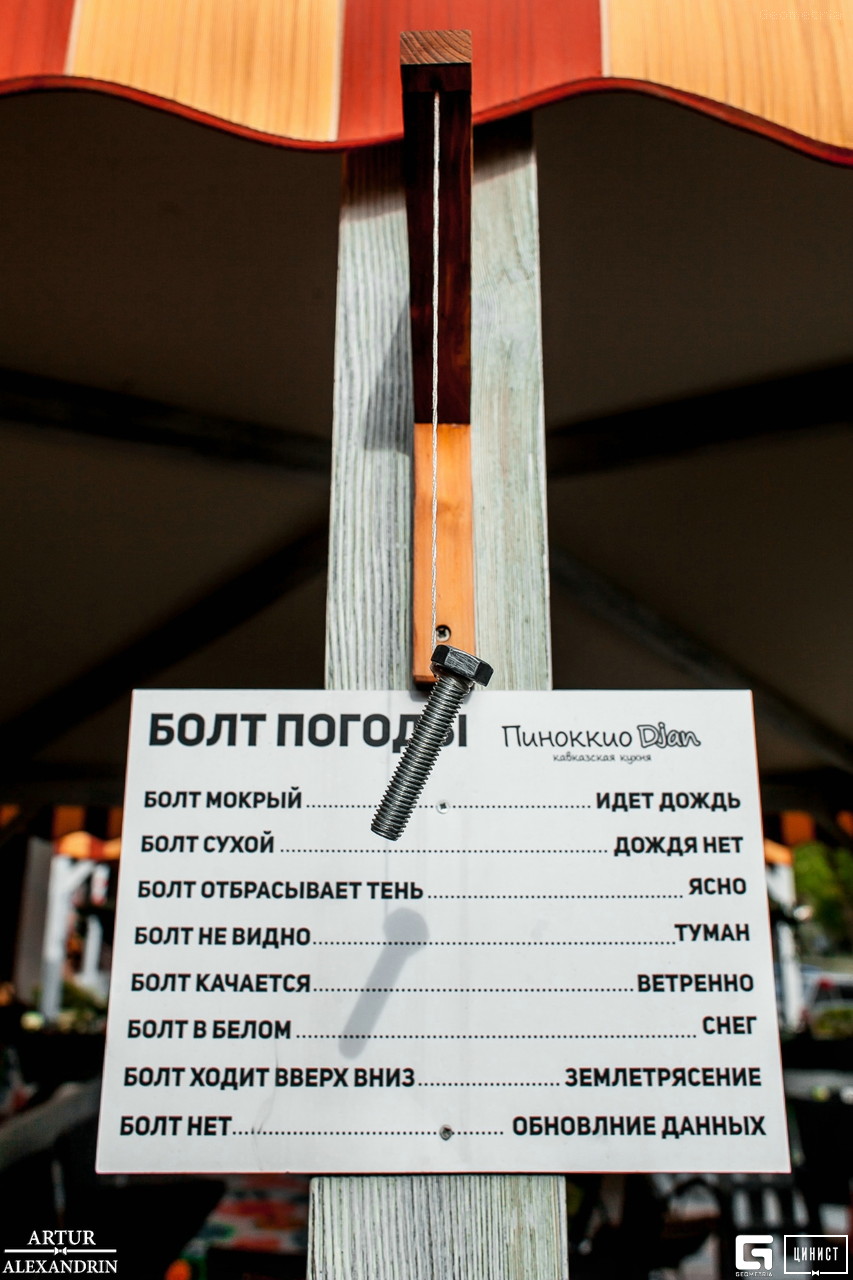 Geometria
БОЛТ ПОГОДЫ
Пиноккио Djan
кавказская кухня
БОЛТ МОКРЫЙ ИДЕТ ДОЖДЬ
БОЛТ СУХОЙ ДОЖДЯ НЕТ
БОЛТ ОТБРАСЫВАЕТ ТЕНЬ ЯСНО
БОЛТ НЕ ВИДНО ТУМАН
БОЛТ КАЧАЕТСЯ ВЕТРЕННО
БОЛТ В БЕЛОМ СНЕГ
БОЛТ ХОДИТ ВВЕРХ ВНИЗ ЗЕМЛЕТРЯСЕНИЕ
БОЛТ НЕТ ОБНОВЛНИЕ ДАННЫХ
ARTUR
ALEXANDRIN
GEOMETRIA
ЦИНИСТ